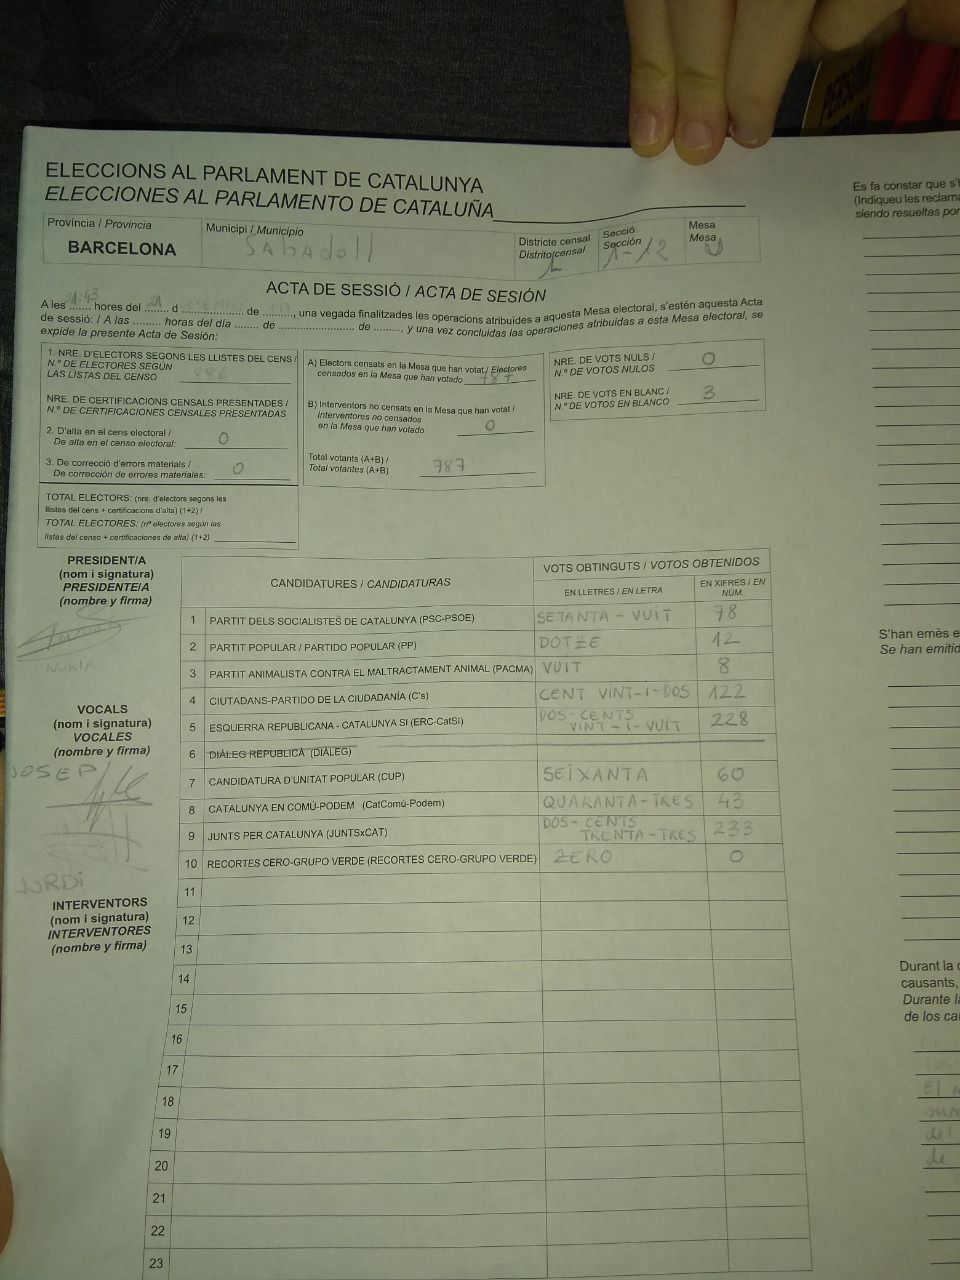 ELECCIONS AL PARLAMENT DE CATALUNYA
ELECCIONES AL PARLAMENTO DE CATALUÑA
Província / Provincia
BARCELONA
Municipi / Municipio
Sabadell
Districte censal
Distrito censal
1
Secció
Sección
1-12
Mesa
Mesa
U
ACTA DE SESSIÓ / ACTA DE SESIÓN
A les 21:43 hores del 21 d ............ de ........., una vegada finalitzades les operacions atribuïdes a aquesta Mesa electoral, s'estén aquesta Acta
de sessió: / A las ......... horas del día ........ de ........................ de ........., y una vez concluidas las operaciones atribuidas a esta Mesa electoral, se
expide la presente Acta de Sesión:
1. NRE. D'ELECTORS SEGONS LES LLISTES DEL CENS /
N.º DE ELECTORES SEGÚN
LAS LISTAS DEL CENSO
NRE. DE CERTIFICACIONS CENSALS PRESENTADES /
N.º DE CERTIFICACIONES CENSALES PRESENTADAS
2. D'alta en el cens electoral /
De alta en el censo electoral: 0
3. De correcció d'errors materials /
De corrección de errores materiales: 0
TOTAL ELECTORS: (nre. d'electors segons les
llistes del cens + certificacions d'alta) (1+2) /
TOTAL ELECTORES: (nº electores según las
listas del censo + certificaciones de alta) (1+2)
A) Electors censats en la Mesa que han votat / Electores
censados en la Mesa que han votado 787
B) Interventors no censats en la Mesa que han votat /
Interventores no censados
en la Mesa que han votado 0
Total votants (A+B) /
Total votantes (A+B) 787
NRE. DE VOTS NULS /
N.º DE VOTOS NULOS 0
NRE. DE VOTS EN BLANC /
N.º DE VOTOS EN BLANCO 3
PRESIDENT/A
(nom i signatura)
PRESIDENTE/A
(nombre y firma)
NURIA
VOCALS
(nom i signatura)
VOCALES
(nombre y firma)
JOSEP
JORDI
INTERVENTORS
(nom i signatura)
INTERVENTORES
(nombre y firma)
CANDIDATURES / CANDIDATURAS
VOTS OBTINGUTS / VOTOS OBTENIDOS
EN LLETRES / EN LETRA
EN XIFRES / EN
NÚM.
1 PARTIT DELS SOCIALISTES DE CATALUNYA (PSC-PSOE) SETANTA-VUIT 78
2 PARTIT POPULAR / PARTIDO POPULAR (PP) DOTZE 12
3 PARTIT ANIMALISTA CONTRA EL MALTRACTAMENT ANIMAL (PACMA) VUIT 8
4 CIUTADANS-PARTIDO DE LA CIUDADANÍA (C's) CENT VINT-I-DOS 122
5 ESQUERRA REPUBLICANA - CATALUNYA SI (ERC-CatSI) DOS-CENTS VINT-I-VUIT 228
6 DIÀLEG REPUBLICÀ (DIÀLEG)
7 CANDIDATURA D'UNITAT POPULAR (CUP) SEIXANTA 60
8 CATALUNYA EN COMÚ-PODEM (CatComú-Podem) QUARANTA-TRES 43
9 JUNTS PER CATALUNYA (JUNTSxCAT) DOS-CENTS TRENTA-TRES 233
10 RECORTES CERO-GRUPO VERDE (RECORTES CERO-GRUPO VERDE) ZERO 0
11
12
13
14
15
16
17
18
19
20
21
22
23
Es fa constar que s'h
(Indiqueu les reclama
siendo resueltas por
S'han emès e
Se han emitid
Durant la c
causants,
Durante la
de los cau
El
del
de